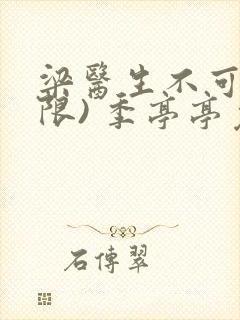 梁醫生不可
限）季亭亭
石傳翠